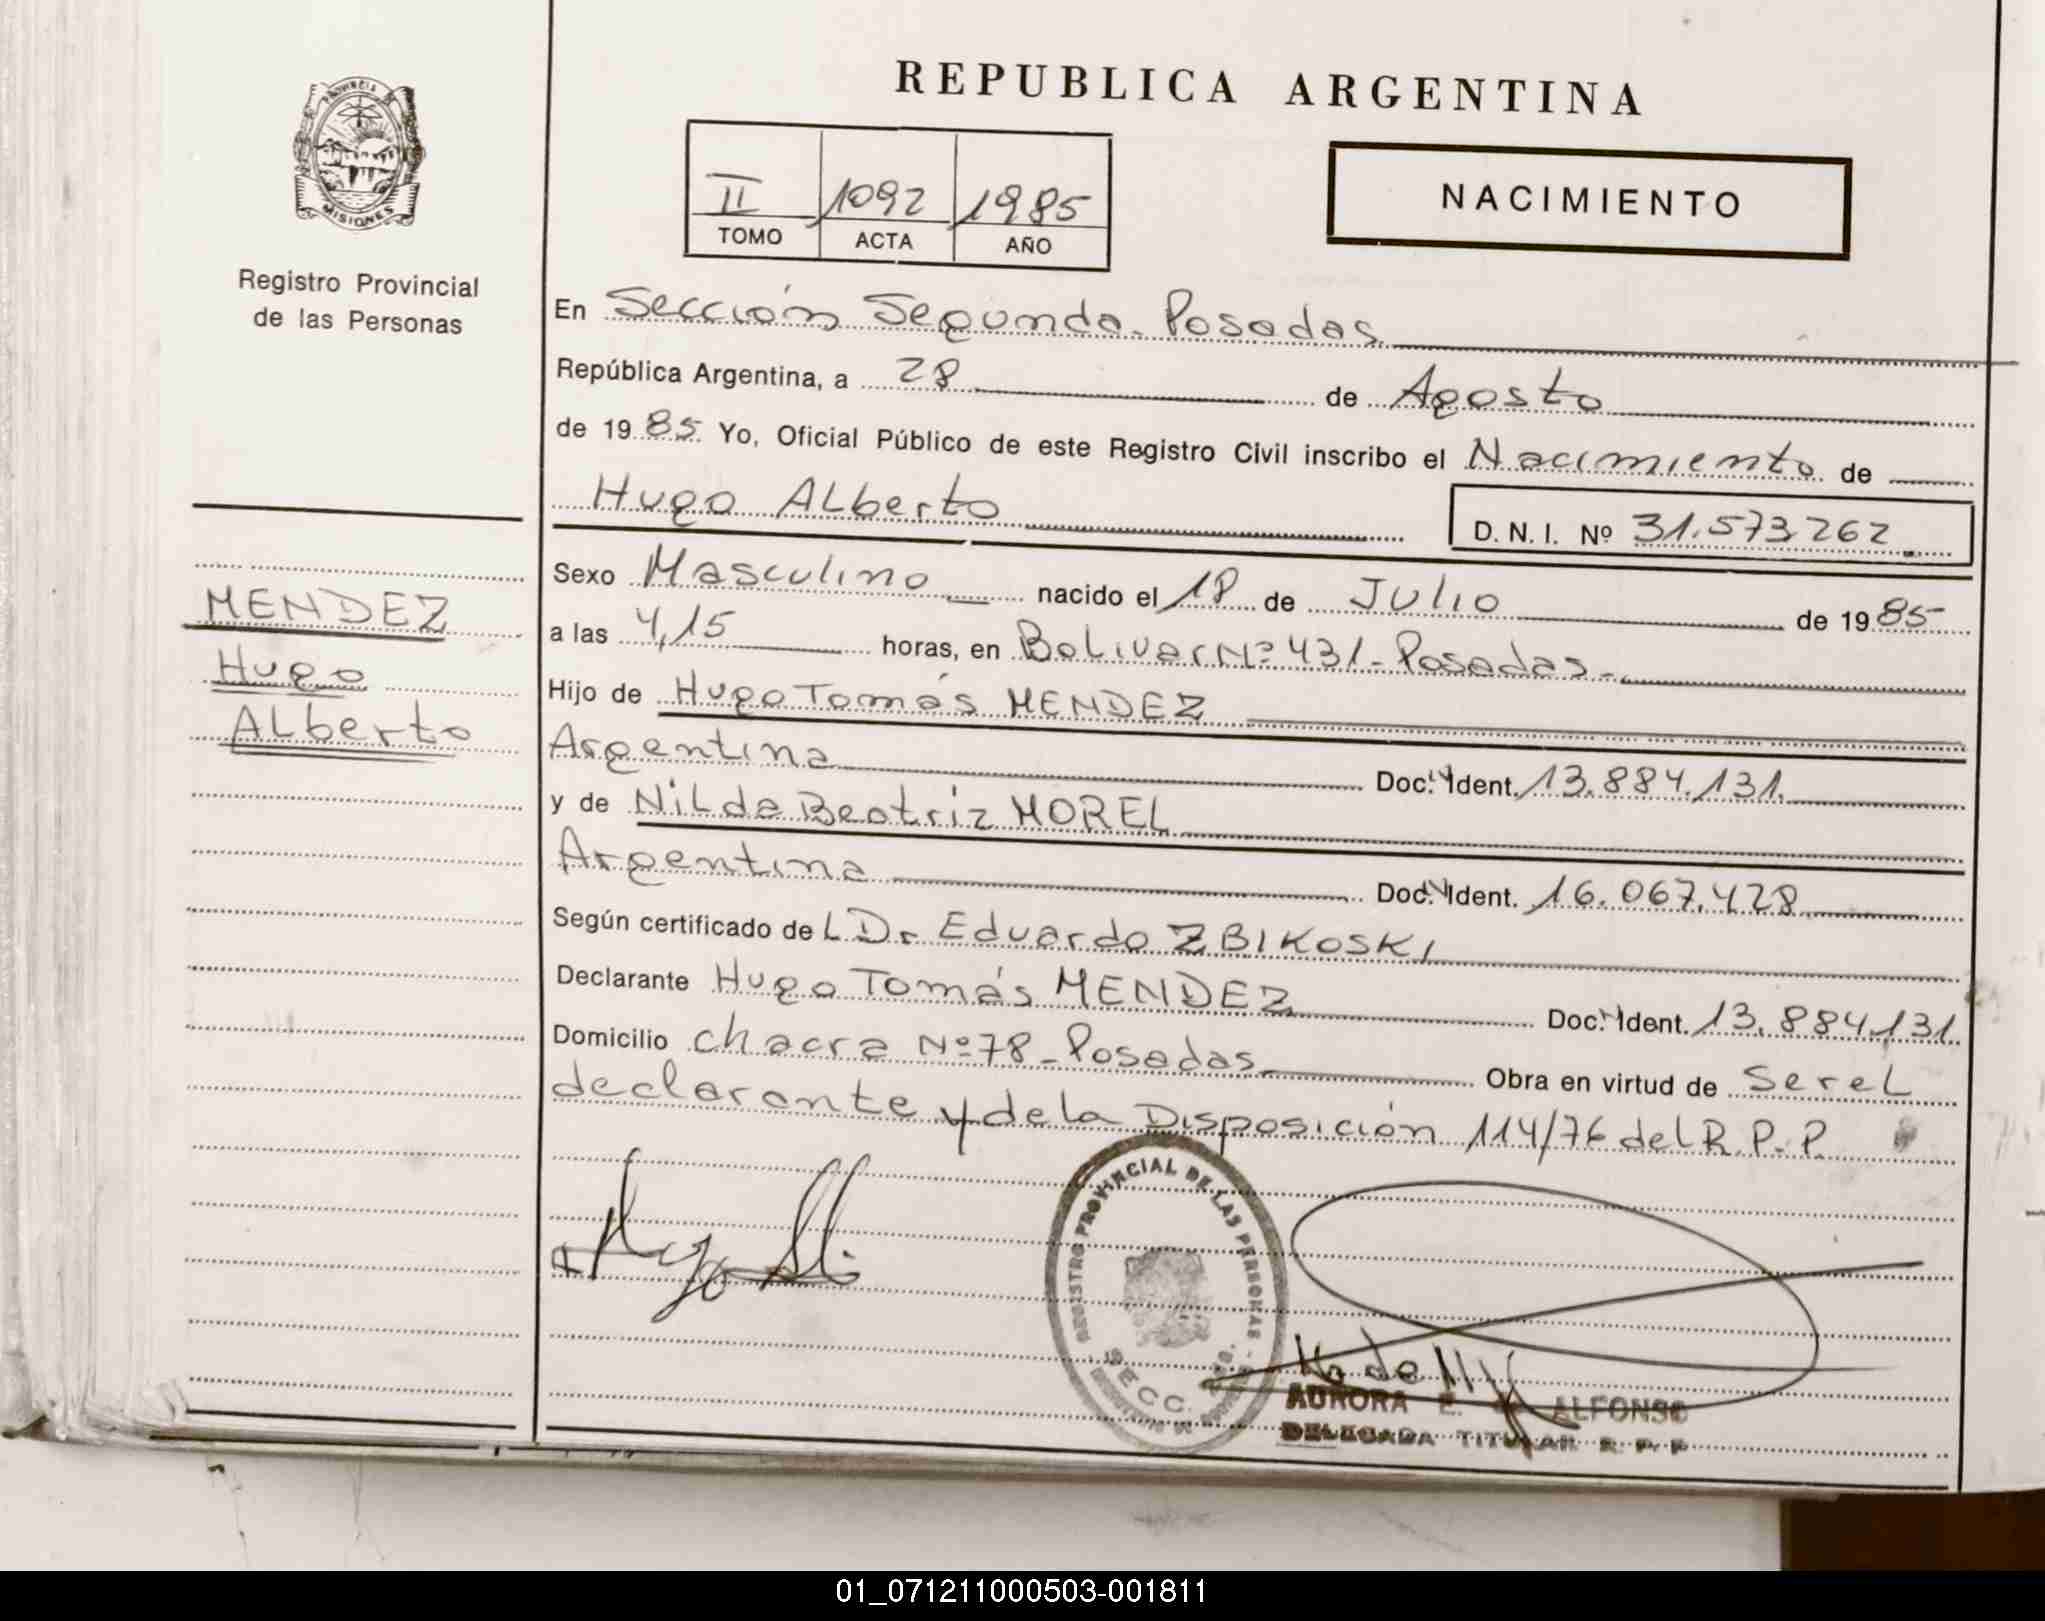 REPUBLICA ARGENTINA
PROVINCIA DE
MISIONES
Registro Provincial
de las Personas
II 1092 1985
TOMO ACTA AÑO
NACIMIENTO
En Sección Segunda - Posadas
República Argentina, a 28 de Agosto
de 1985 Yo, Oficial Público de este Registro Civil inscribo el Nacimiento de
Hugo Alberto D.N.I. Nº 31.573.262
MENDEZ
Hugo
Alberto
Sexo Masculino nacido el 18 de Julio de 1985
a las 4,15 horas, en Bolivar Nº 431 - Posadas -
Hijo de Hugo Tomás MENDEZ
Argentina Doc. Ident. 13.884.131.
y de Nilda Beatriz MOREL
Argentina Doc. Ident. 16.067.428
Según certificado del Dr. Eduardo ZBIKOSKI
Declarante Hugo Tomás MENDEZ Doc. Ident. 13.884.131
Domicilio chacra Nº 78 - Posadas Obra en virtud de ser el
declarante y de la Disposición 114/76 del R.P.P.
REGISTRO PROVINCIAL DE LAS PERSONAS
SECC.
AURORA E. ALFONSO
DELEGADA TITULAR R.P.P
01_071211000503-001811